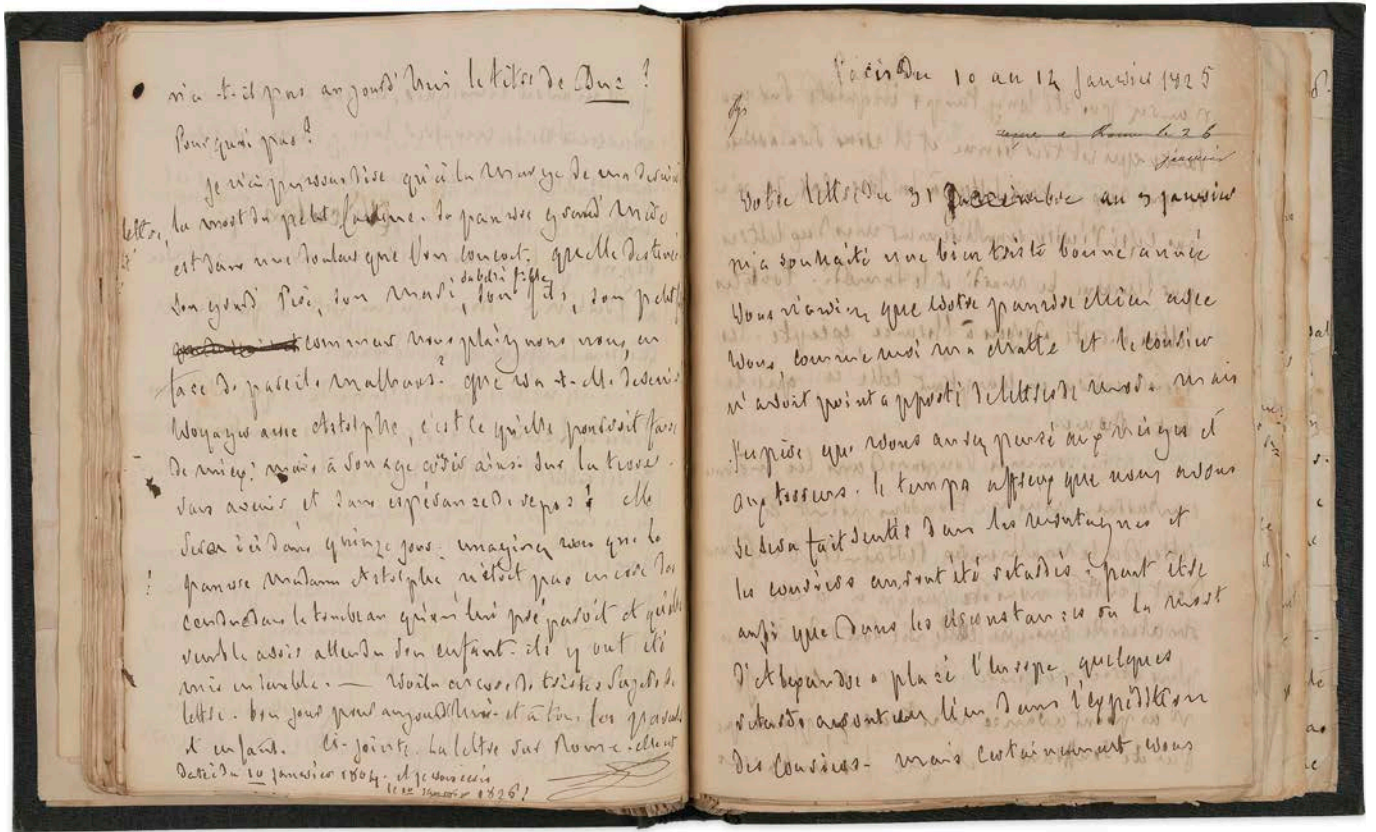 n'a-t-il pas aujourd'hui le titre de Duc ?
Pourquoi pas ?
Je n'ai pu vous dire qu'à la marge de ma dernière
lettre, la mort du petit . La pauvre grand mère
est dans une douleur que l'on conçoit. quelle destinée
son grand Père, son mari, sa belle fille, son fils, son petit
comment nous plaignons nous, en
face de pareils malheurs ? que va-t-elle devenir
voyager avec Astolphe, c'est ce qu'elle pourroit faire
de mieux ! mais à son age errer ainsi sur la terre
sans avenir et sans espérance de repos ! elle
sera ici dans quinze jours. imaginez vous que la
pauvre madame Astolphe n'étoit pas encore
dans le tombeau qu'on lui préparoit et qu'elle
semble avoir attendu son enfant. ils y ont été
mis ensemble. — Voila encore de tristes sujets de
lettre. bon jour pour aujourd'hui et à tous les parents
et enfant. Ci-jointe la lettre sur Rome. elle est
datée du 10 janvier 1804. et je vous écris
le janvier 1826 !
Paris Du 10 au 14 Janvier 1825
Rome le 26
janvier
Votre lettre du 31 Decembre au 3 janvier
m'a souhaité une bien triste bonne année
Vous n'aviez que votre pauvre chien avec
vous, comme moi ma chatte et le courier
n'avoit point apporté de lettres de moi. mais
j'espère que vous aurez pensé aux neiges et
aux torrens. le temps affreux que nous avons
se sera fait sentir dans les montagnes et
les courriers auront été retardés : peut etre
aussi que dans les circonstances ou la mort
d'Alexandre a placé l'Europe, quelques
retards auront eu lieu dans l'expédition
des courriers - mais certainement vous